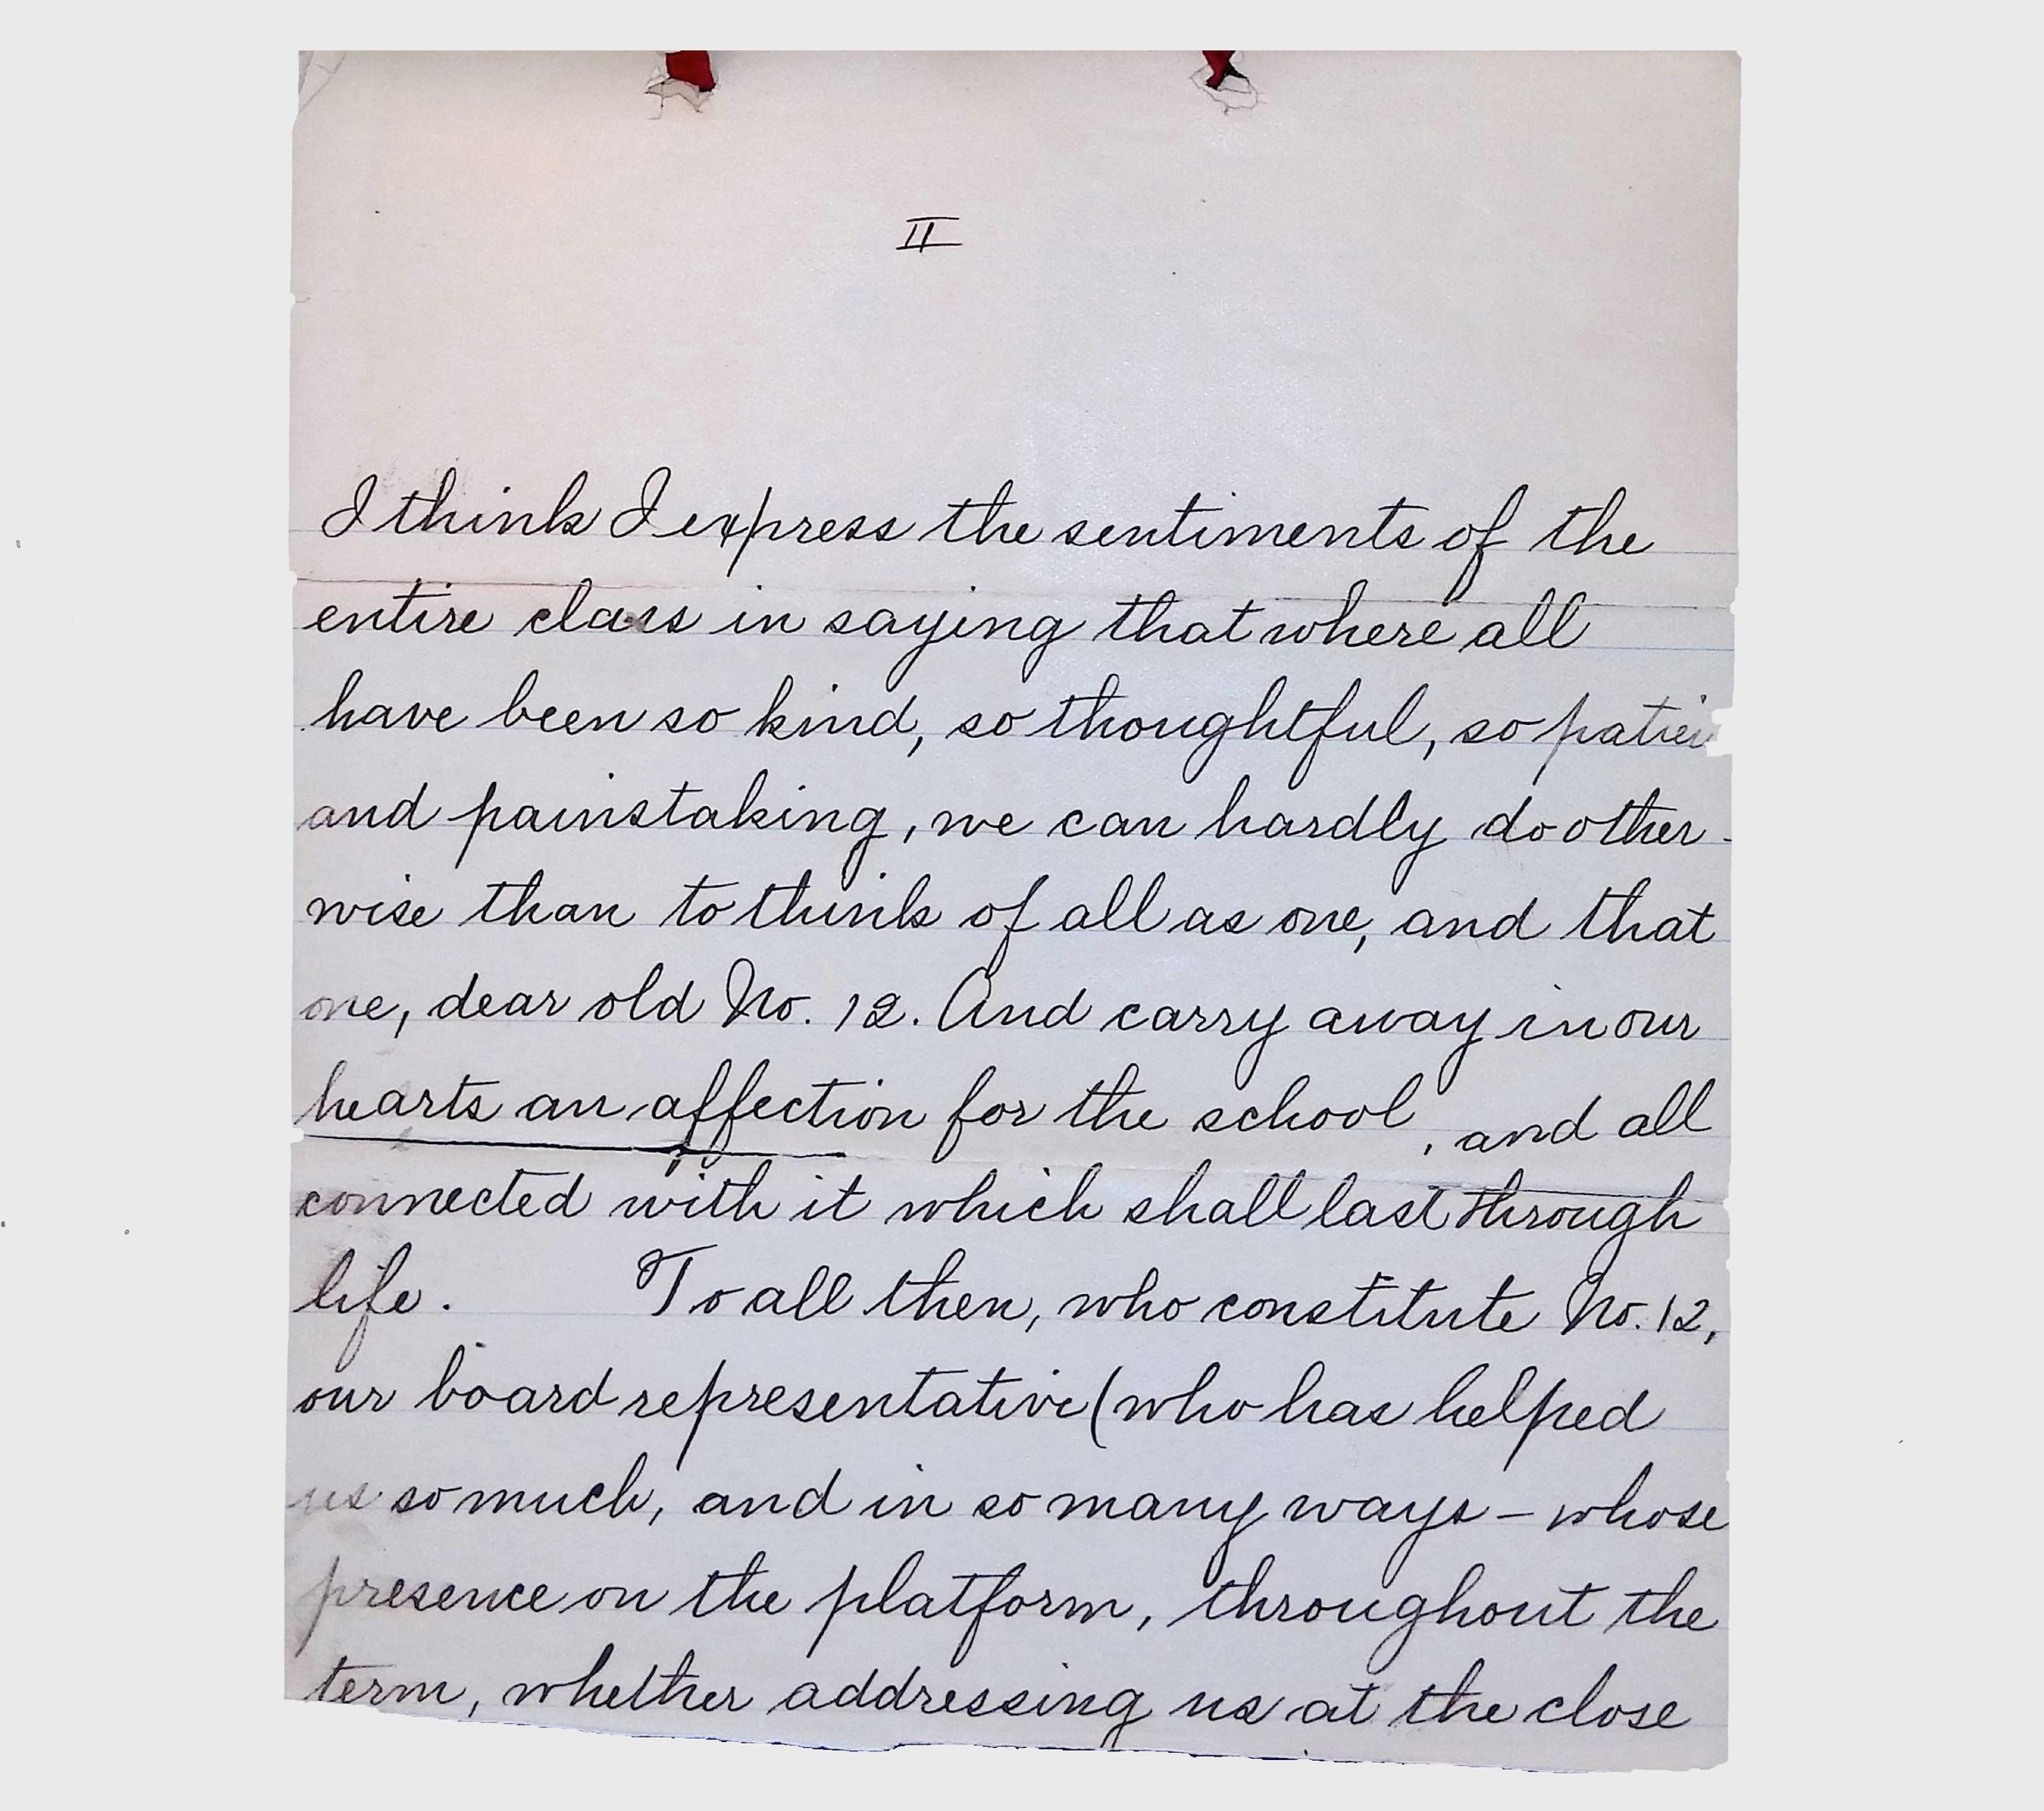 II
I think I express the sentiments of the
entire class in saying that where all
have been so kind, so thoughtful, so patien
and painstaking, we can hardly do other-
wise than to think of all as one, and that
one, dear old No. 12. And carry away in our
hearts an affection for the school, and all
connected with it which shall last through
life. To all then, who constitute No. 12,
our board representative (who has helped
us so much, and in so many ways - whose
presence on the platform, throughout the
term, whether addressing us at the close